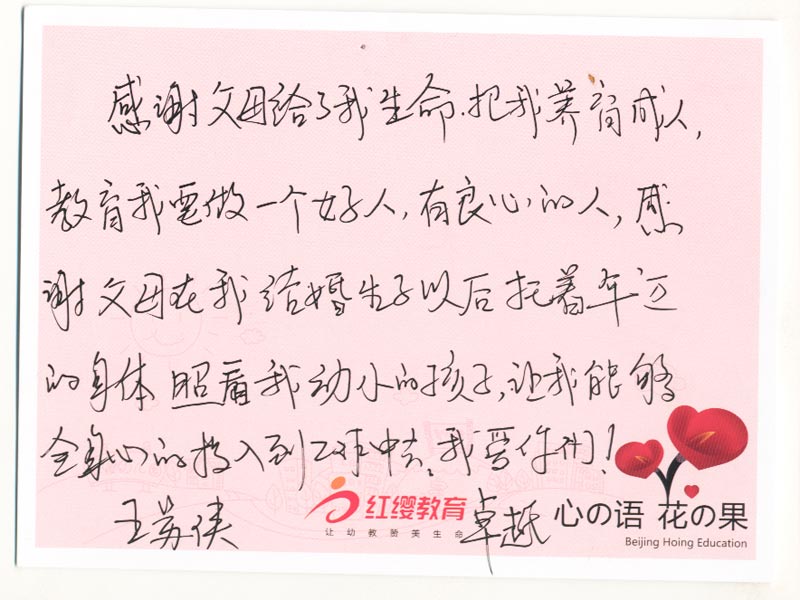 感谢父母给了我生命.把我养育成人,
教育我要做一个好人,有良心的人,感
谢父母在我结婚生子以后托着年迈
的身体照看我幼小的孩子,让我能够
全身心的投入到工作中去。我爱你们!
王苏侠
卓越
红缨教育
让幼教赞美生命
心の语 花の果
Beijing Hoing Education